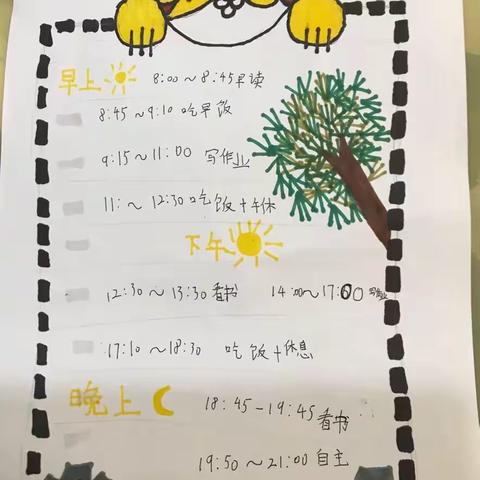 早上 8:00~8:45早读
8:45~9:10吃早饭
9:15~11:00 写作业
11:~12:30吃饭+午休
下午
12:30~13:30看书 14:00~17:00写作业
17:10~18:30 吃饭+休息
晚上 18:45-19:45看书
19:50~21:00自主